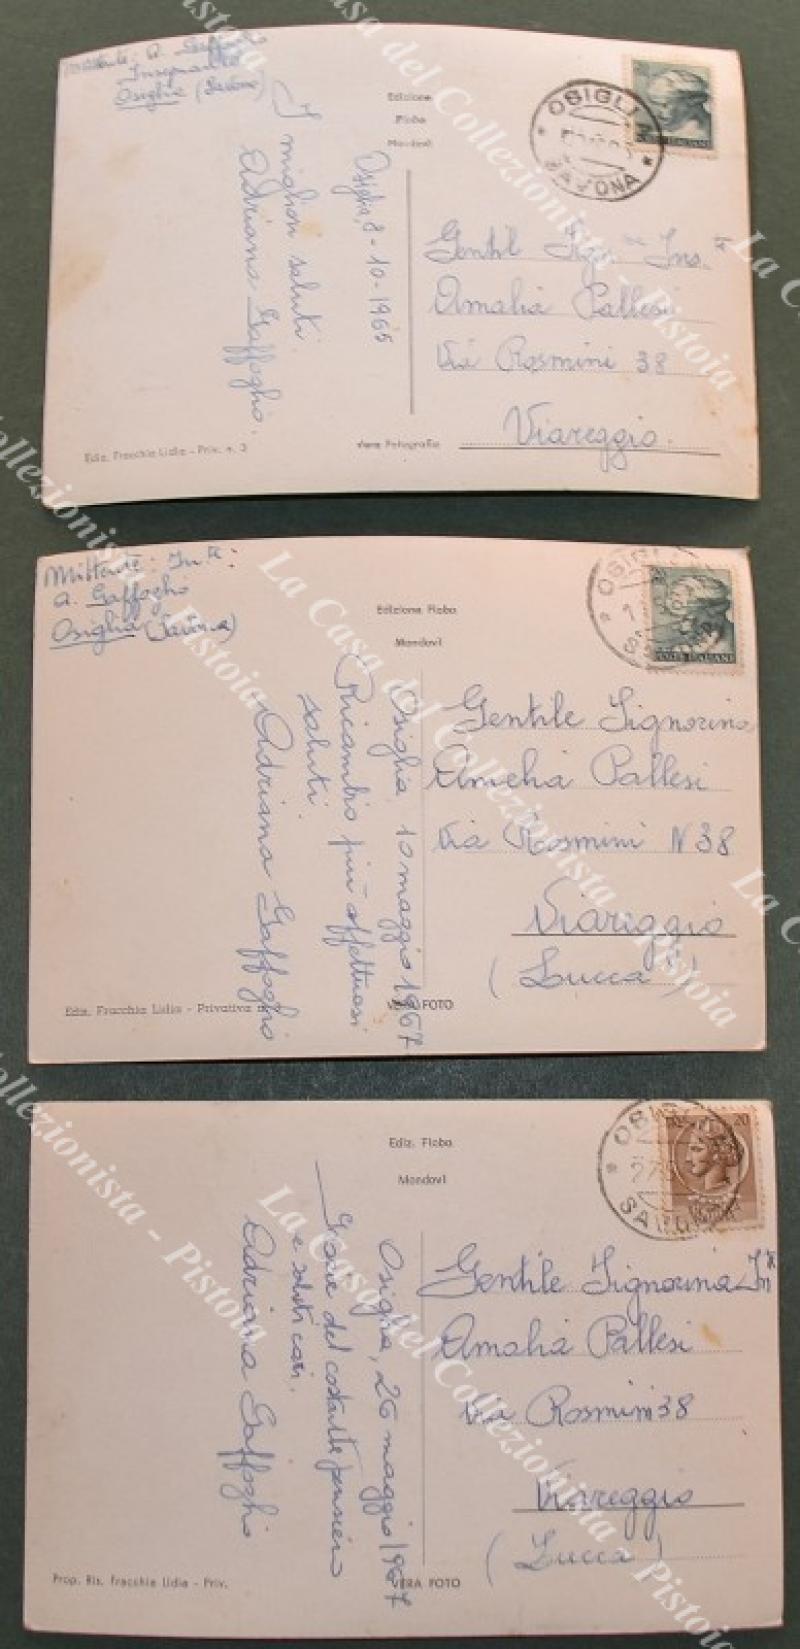 Mittente: A. Gaffoglio
Insegnante
Osiglia (Savona)
Edizione
Fioba
Mondovì
OSIGLIA
SAVONA
POSTE ITALIANE
Osiglia, 8-10-1965
I migliori saluti.
Adriana Gaffoglio.
Gentil Sig.na Ins.te
Amalia Pallesi
Via Rosmini 38
Viareggio.
Ediz. Fracchia Lidia - Priv. n. 3
Vera Fotografia
Mittente: In.te:
A. Gaffoglio
Osiglia (Savona)
Edizione Fioba
Mondovì
OSIGLIA
POSTE ITALIANE
Osiglia 10 maggio 1967
Ricambio più affettuosi
saluti.
Adriana Gaffoglio
Gentile Signorina
Amelia Pallesi
Via Rosmini N 38
Viareggio
(Lucca)
Ediz. Fracchia Lidia - Privativa n.
VERA FOTO
Ediz. Fioba
Mondovì
OSIGLIA
SAVONA
20
Osiglia, 26 maggio 1967
Grazie del costante pensiero
e saluti cari.
Adriana Gaffoglio
Gentile Signorina In.te
Amalia Pallesi
Via Rosmini 38
Viareggio
(Lucca)
Prop. Ris. Fracchia Lidia - Priv.
VERA FOTO
La Casa del Collezionista - Pistoia